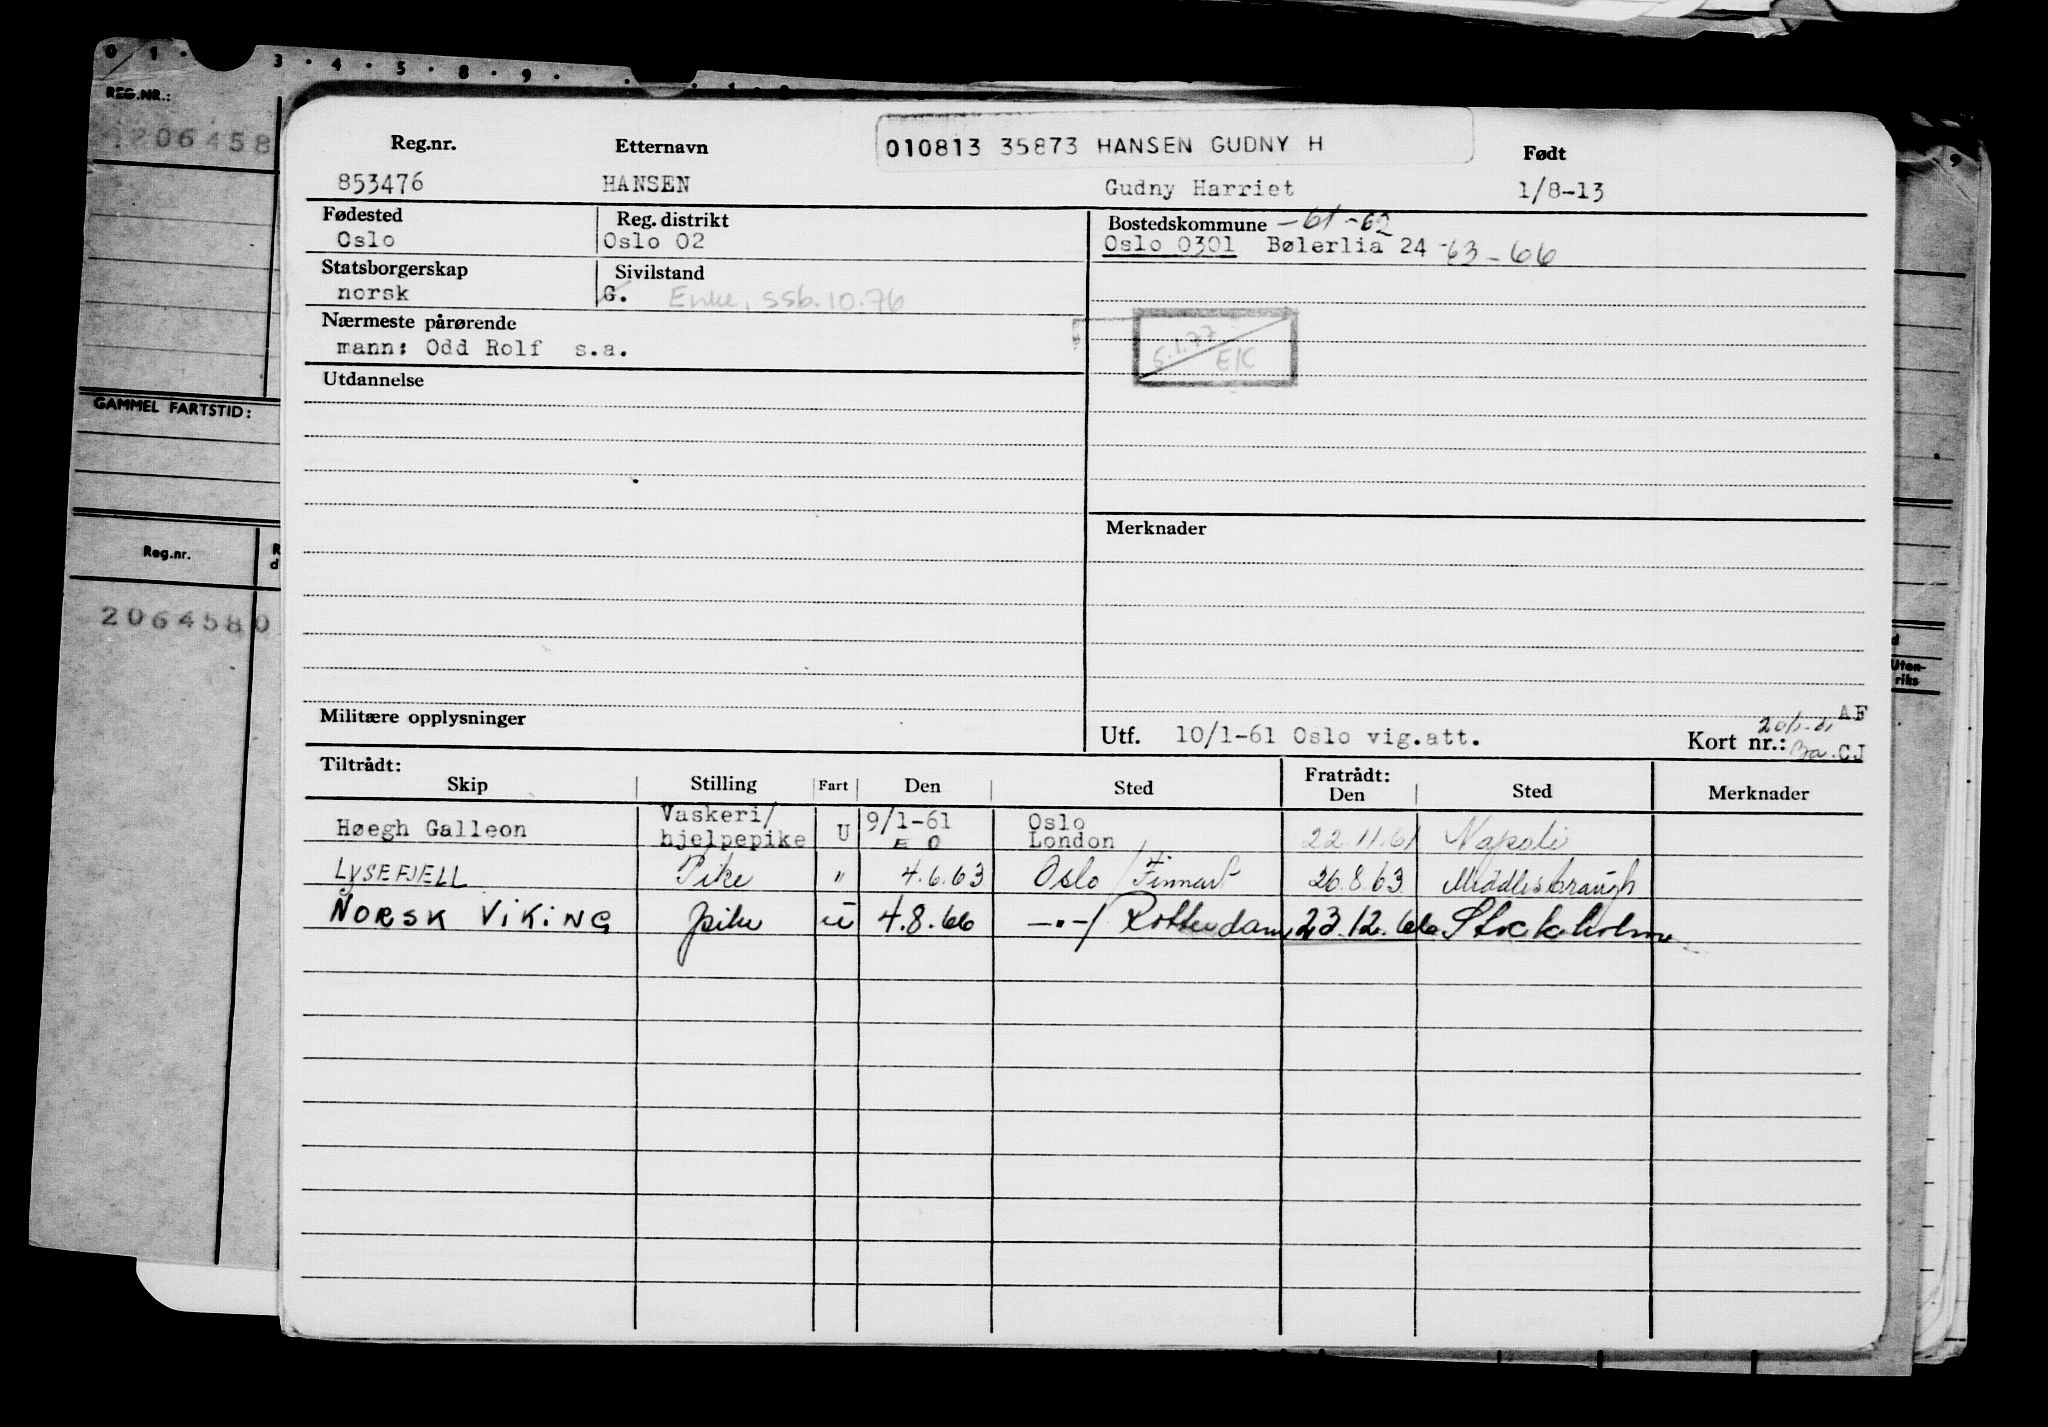 0 1 3 4 5 8 9
REG.NR.:
206458
GAMMEL FARTSTID:
Reg.nr.
2064580
010813 35873 HANSEN GUDNY H
Reg.nr. Etternavn Født
853476 HANSEN Gudny Harriet 1/8-13
Fødested Reg. distrikt Bostedskommune -61-62
Oslo Oslo 02 Oslo 0301 Bølerlia 24 -63-66
Statsborgerskap Sivilstand
norsk G. Enke, ssb.10.76
Nærmeste pårørende
mann: Odd Rolf s.a.
5.1.77 EK
Utdannelse
Merknader
Militære opplysninger
Utf. 10/1-61 Oslo vig.att. Kort nr.: AF
CJ
Tiltrådt: Fratrådt:
Skip Stilling Fart Den Sted Den Sted Merknader
Høegh Galleon Vaskeri/ hjelpepike U 9/1-61 Oslo London 22.11.61 Napoli
LYSEFJELL Pike " 4.6.63 Oslo / Finnart 26.8.63 Middlesbraugh
NORSK VIKING pike u 4.8.66 -"-/ Rotterdam 23.12.66 Stockholm
Uten-
riks